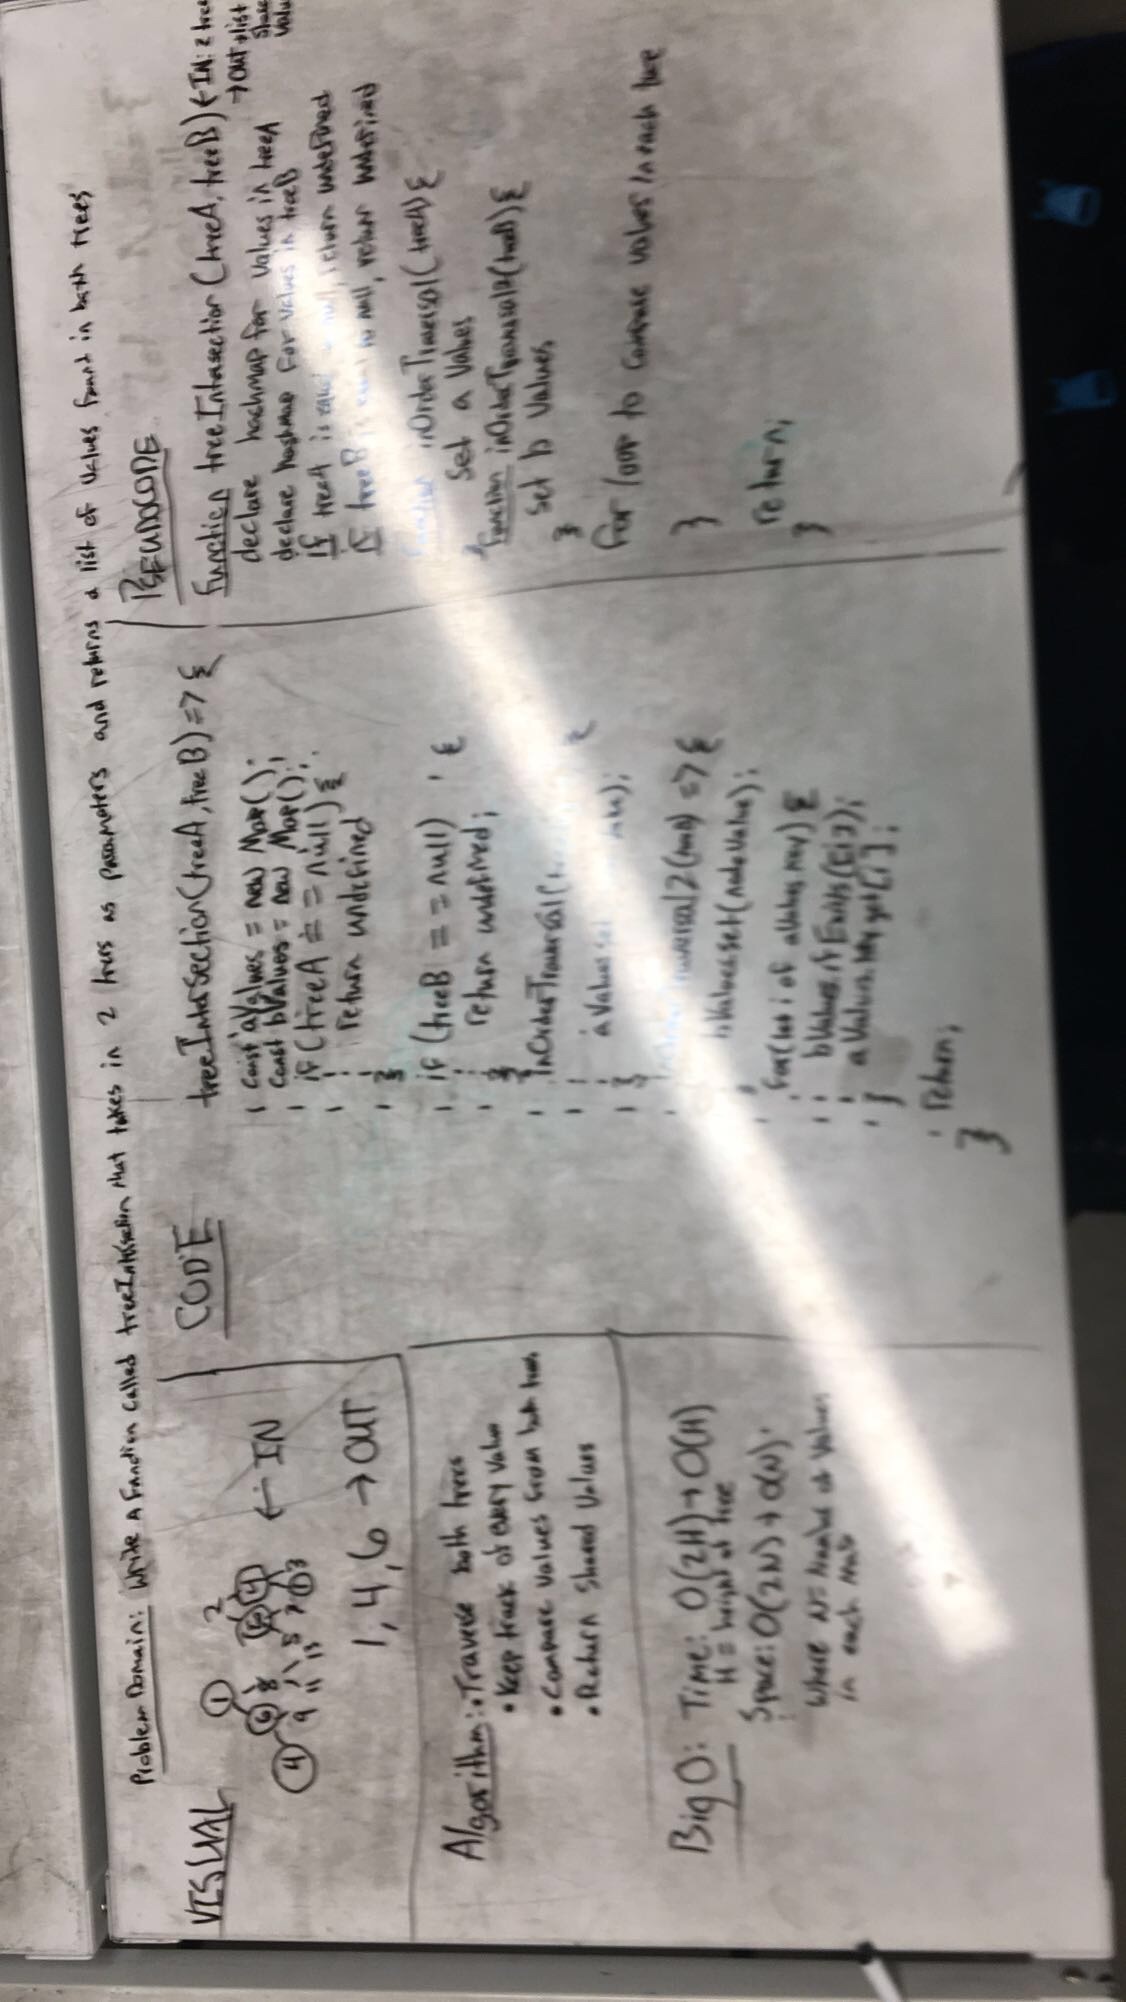 Problem Domain: Write A Function called treeIntersection that takes in 2 trees as parameters and returns a list of values found in both trees
VISUAL
1 2
6 8 6 4
4 9 11 15 5 7 1 3
← IN
1, 4, 6 → OUT
Algorithm: • Traverse both trees
• Keep track of every value
• Compare values from both trees
• Return shared values
Big O: Time: O(2H) → O(H)
H = height of tree
Space: O(2N) → O(N).
where N = Number of values
in each
CODE
treeInterSection(treeA, treeB) => {
const aValues = new Map();
const bValues = new Map();
if (treeA === null) {
return undefined
}
if (treeB === null) {
return undefined;
}
inOrderTraversal(
aValues.set
}
bValues.set(node.value);
}
for(let i of aValues
bValues.
aValues
}
return;
}
PSEUDOCODE
Function treeIntersection (treeA, treeB) ← IN: 2 tree
→ OUT → list
declare hashmap for values in treeA
declare hashmap for values in treeB
IF treeA is null, return undefined
IF treeB is null, return undefined
Function inOrderTraversal(treeA) {
Set a Values
}
function inOrderTraversal2(treeB) {
Set b Values
}
For loop to compare values in each tree
}
return;
}